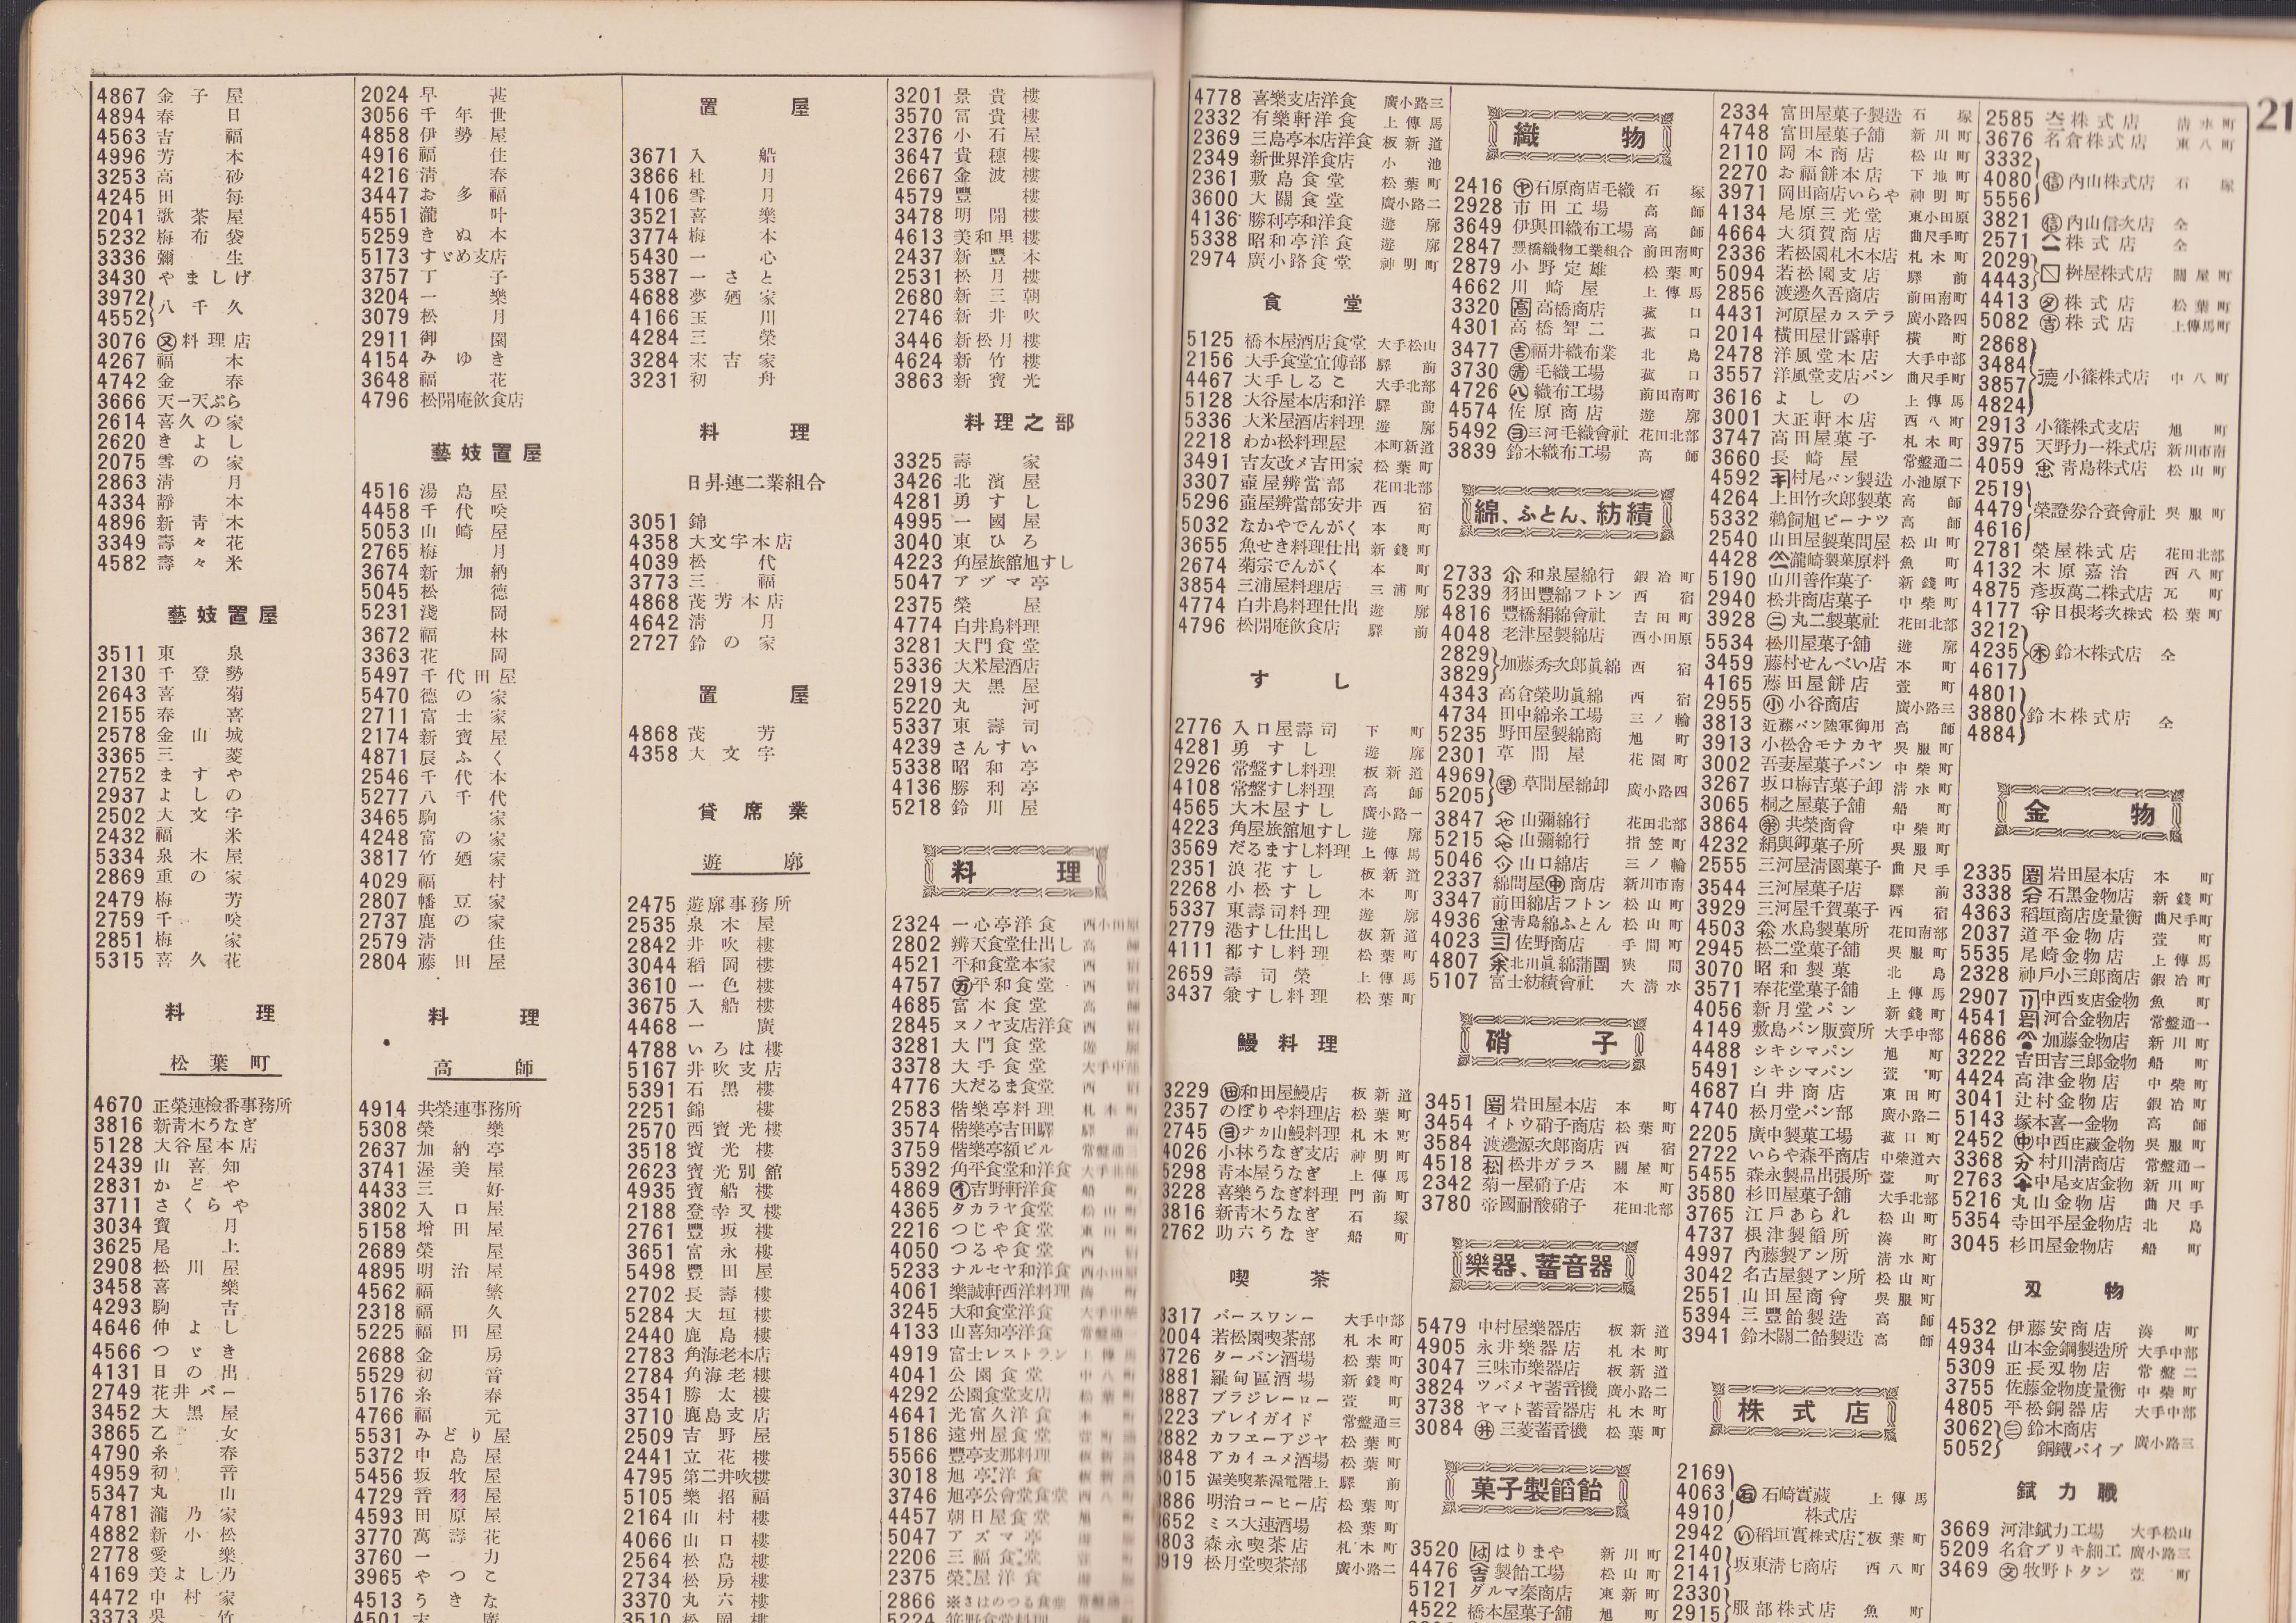 4867 金子屋
4894 春日
4563 吉福
4996 芳本
3253 高砂
4245 田毎
2041 歌茶屋
5232 梅布袋
3336 彌生
3430 やましげ
3972
4552 八千久
3076 ㊊料理店
4267 福本
4742 金春
3666 天一天ぷら
2614 喜久の家
2620 きよし
2075 雪の家
2863 淸月
4334 靜本
4896 新青木
3349 壽々花
4582 壽々米
藝妓置屋
3511 東泉
2130 千登勢
2643 喜菊
2155 春喜
2578 金山城
3365 三菱
2752 ますや
2937 よしの
2502 大文字
2432 福米
5334 泉木屋
2869 重の家
2479 梅芳
2759 千咲
2851 梅家
5315 喜久花
料理
松葉町
4670 正榮連檢番事務所
3816 新靑木うなぎ
5128 大谷屋本店
2439 山喜知
2831 かどや
3711 さくらや
3034 賓月
3625 尾上
2908 松川屋
3458 喜樂
4293 駒吉
4646 仲よし
4566 つゞき
4131 日の出
2749 花井バー
3452 大黑屋
3865 乙女
4790 糸春
4959 初音
5347 丸山
4781 瀧乃家
4882 新小松
2778 愛樂
4169 美よし乃
4472 中村家
3373 吳竹
2024 早甚
3056 千年世
4858 伊勢屋
4916 福住
4216 淸春
3447 お多福
4551 瀧叶
5259 きぬ本
5173 すゞめ支店
3757 丁子
3204 一樂
3079 松月
2911 御園
4154 みゆき
3648 福花
4796 松開庵飮食店
藝妓置屋
4516 湯島屋
4458 千代咲
5053 山崎屋
2765 梅月
3674 新加納
5045 松德
5231 淺岡
3672 福林
3363 花岡
5497 千代田屋
5470 德の家
2711 富士家
2174 新寶屋
4871 辰ふく
2546 千代本
5277 八千代
3465 駒家
4248 富の家
3817 竹廼家
4029 福村
2807 幡豆家
2737 鹿の家
2579 淸住
2804 藤田屋
料理
高師
4914 共榮連事務所
5308 榮樂
2637 加納亭
3741 渥美屋
4433 三好
3802 入口屋
5158 增田屋
2689 榮屋
4895 明治屋
4562 福繁
2318 福久
5225 福田屋
2688 金房
5529 初音
5176 糸春
4766 福元
5531 みどり屋
5372 中島屋
5456 坂牧屋
4729 音羽屋
4593 田原屋
3770 萬壽花
3760 一力
3965 やつこ
4513 うきな
4501 末廣
置屋
3671 入船
3866 杜月
4106 雪月
3521 喜樂
3774 梅本
5430 一心
5387 一さと
4688 夢廼家
4166 玉川
4284 三榮
3284 末吉家
3231 初舟
料理
日昇連二業組合
3051 錦
4358 大文字本店
4039 松代
3773 三福
4868 茂芳本店
4642 淸月
2727 鈴の家
置屋
4868 茂芳
4358 大文字
貸席業
遊廓
2475 遊廓事務所
2535 泉木屋
2842 井吹樓
3044 稻岡樓
3610 一色樓
3675 入船樓
4468 一廣
4788 いろは樓
5167 井吹支店
5391 石黑樓
2251 錦樓
2570 西寶光樓
3518 寶光樓
2623 寶光別館
4935 寶船樓
2188 登幸又樓
2761 豐坂樓
3651 富永樓
5498 豐田屋
2702 長壽樓
5284 大垣樓
2440 鹿島樓
2783 角海老本店
2784 角海老樓
3541 勝太樓
3710 鹿島支店
2509 吉野屋
2441 立花樓
4795 第二井吹樓
5105 樂招福
2164 山村樓
4066 山口樓
2564 松島樓
2734 松房樓
3370 丸六樓
3510 松岡樓
3201 景貴樓
3570 富貴樓
2376 小石屋
3647 貴穗樓
2667 金波樓
4579 豐樓
3478 明開樓
4613 美和里樓
2437 新豐本
2531 松月樓
2680 新三朝
2746 新井吹
3446 新松月樓
4624 新竹樓
3863 新寶光
料理之部
3325 壽家
3426 北濱屋
4281 勇すし
4995 一國屋
3040 東ひろ
4223 角屋旅舘旭すし
5047 アヅマ亭
2375 榮屋
4774 白井鳥料理
3281 大門食堂
5336 大米屋酒店
2919 大黑屋
5220 丸河
5337 東壽司
4239 さんすい
5338 昭和亭
4136 勝利亭
5218 鈴川屋
料理
2324 一心亭洋食 西小田原
2802 辨天食堂仕出し 高師
4521 平和食堂本家 西宿
4757 ㊄平和食堂 西宿
4685 富本食堂 高師
2845 ヌノヤ支店洋食 西宿
3281 大門食堂 遊廓
3378 大手食堂 大手中部
4776 大だるま食堂 西宿
2583 偕樂亭料理 札木町
3574 偕樂亭吉田驛 驛前
3759 偕樂亭額ビル 常盤通
5392 角平食堂和洋食 大手北部
4869 ㋑吉野軒洋食 船町
4365 タカラヤ食堂 松山町
2216 つじや食堂 東田町
4050 つるや食堂 西宿
5233 ナルセヤ和洋食 西小田原
4061 樂誠軒西洋料理 湊町
3245 大和食堂洋食 大手中部
4133 山喜知亭洋食 常盤通
4919 富士レストラン 上傳馬
4041 公園食堂 中八町
4292 公園食堂支店 松葉町
4641 光富久洋食 本町
5186 遠州屋食堂
5566 豐亭支那料理 板新道
3018 旭亭洋食 板新道
3746 旭亭公會堂食堂 西八町
4457 朝日屋食堂 旭町
5047 アズマ亭
2206 三福食堂
2375 榮屋洋食
2866 ※さはのつる食堂 常盤通
5224 笹野食堂料理
4778 喜樂支店洋食 廣小路三
2332 有樂軒洋食 上傳馬
2369 三島亭本店洋食 板新道
2349 新世界洋食店 小池
2361 敷島食堂 松葉町
3600 大關食堂 廣小路二
4136 勝利亭和洋食 遊廓
5338 昭和亭洋食 遊廓
2974 廣小路食堂 神明町
食堂
5125 橋本屋酒店食堂 大手松山
2156 大手食堂宣傳部 驛前
4467 大手しるこ 大手北部
5128 大谷屋本店和洋 驛前
5336 大米屋酒店料理 遊廓
2218 わか松料理屋 本町新道
3491 吉友改メ吉田家 松葉町
3307 壺屋辨當部 花田北部
5296 壺屋辨當部安井 西宿
5032 なかやでんがく 本町
3655 魚せき料理仕出 新錢町
2674 菊宗でんがく 本町
3854 三浦屋料理店 三浦町
4774 白井鳥料理仕出 遊廓
4796 松開庵飮食店 驛前
すし
2776 入口屋壽司 下町
4281 勇すし 遊廓
2926 常盤すし料理 板新道
4108 常盤すし料理 高師
4565 大木屋すし 廣小路一
4223 角屋旅舘旭すし 遊廓
3569 だるますし料理 上傳馬
2351 浪花すし 板新道
2268 小松すし 本町
5337 東壽司料理 遊廓
2779 港すし仕出し 板新道
4111 都すし料理 松葉町
2659 壽司榮 上傳馬
3437 釜すし料理 松葉町
鰻料理
3229 ㊐和田屋鰻店 板新道
2357 のぼりや料理店 松葉町
2745 ㋵ナカ山鰻料理 札木町
4026 小林うなぎ支店 神明町
5298 青本屋うなぎ 上傳馬
3228 喜樂うなぎ料理 門前町
3816 新靑木うなぎ 石塚
2762 助六うなぎ 船町
喫茶
3317 バースワンー 大手中部
2004 若松園喫茶部 札木町
3726 ターバン酒場 松葉町
3881 羅甸區酒場 新錢町
3887 ブラジレーロー 萱町
223 プレイガイド 常盤通三
2882 カフエーアジヤ 松葉町
848 アカイユメ酒場 松葉町
015 渥美喫茶渥電階上 驛前
886 明治コーヒー店 松葉町
652 ミス大連酒場 松葉町
803 森永喫茶店 札木町
919 松月堂喫茶部 廣小路二
織物
2416 ㋳石原商店毛織 石塚
2928 市田工場 高師
3649 伊與田織布工場 高師
2847 豐橋織物工業組合 前田南町
2879 小野定雄 松葉町
4662 川崎屋 上傳馬
3320 高高橋商店 菰口
4301 高橋犂二 菰口
3477 ㊉福井織布業 北島
3730 ㊒毛織工場 菰口
4726 ㊇織布工場 前田南町
4574 佐原商店 遊廓
5492 ㋵三河毛織會社 花田北部
3839 鈴木織布工場 高師
綿、ふとん、紡績
2733 和泉屋綿行 鍛冶町
5239 羽田豐綿フトン 西宿
4816 豐橋絹綿會社 吉田町
4048 老津屋製綿店 西小田原
2829
3829 加藤秀次郎眞綿 西宿
4343 高倉榮助眞綿 西宿
4734 田中綿糸工場 三ノ輪
5235 野田屋製綿商 旭町
2301 草間屋 花園町
4969
5205 草間屋綿卸 廣小路四
3847 山彌綿行 花田北部
5215 山彌綿行 指笠町
5046 山口綿店 三ノ輪
2337 綿間屋㊥商店 新川市南
3347 前田綿店フトン 松山町
4936 靑島綿ふとん 松山町
4023 佐野商店 手間町
4807 北川眞綿蒲團 狹間
5107 富士紡績會社 大淸水
硝子
3451 岩田屋本店 本町
3454 イトウ硝子商店 松葉町
3584 渡邊源次郎商店 西宿
4518 松井ガラス 關屋町
2342 菊一屋硝子店 本町
3780 帝國耐酸硝子 花田北部
樂器、蓄音器
5479 中村屋樂器店 板新道
4905 永井樂器店 札木町
3047 三味市樂器店 板新道
3824 ツバメヤ蓄音機 廣小路二
3738 ヤマト蓄音器店 札木町
3084 三菱蓄音機 松葉町
菓子製餡飴
3520 はりまや 新川町
4476 製飴工場 松山町
5121 ダルマ秦商店 東新町
4522 橋本屋菓子舖 旭町
2334 富田屋菓子製造 石塚
4748 富田屋菓子舖 新川町
2110 岡本商店 松山町
2270 お福餅本店 下地町
3971 岡田商店いらや 神明町
4134 尾原三光堂 東小田原
4664 大須賀商店 曲尺手町
2336 若松園札木本店 札木町
5094 若松園支店 驛前
2856 渡邊久吾商店 前田南町
4431 河原屋カステラ 廣小路四
2014 橫田屋甘露軒 橫町
2478 洋風堂本店 大手中部
3557 洋風堂支店パン 曲尺手町
3616 よしの 上傳馬
3001 大正軒本店 西八町
3747 高田屋菓子 札木町
3660 長崎屋 常盤通二
4592 村尾パン製造 小池原下
4264 上田竹次郎製菓 高師
5332 鵜飼旭ピーナツ 高師
2540 山田屋製菓問屋 松山町
4428 瀧崎製菓原料 魚町
5190 山川善作菓子 新錢町
2940 松井商店菓子 中柴町
3928 ㊁丸二製菓社 花田北部
5534 松川屋菓子舖 遊廓
3459 藤村せんべい店 本町
4165 藤田屋餅店 萱町
2955 小谷商店 廣小路三
3813 近藤パン陸軍御用 高師
3913 小松舍モナカヤ 吳服町
3002 吾妻屋菓子パン 中柴町
3267 坂口梅吉菓子卸 淸水町
3065 桐之屋菓子舖 船町
3864 共榮商會 中柴町
4232 絹與御菓子所 吳服町
2555 三河屋淸園菓子 曲尺手
3544 三河屋菓子店 驛前
3929 三河屋千賀菓子 西宿
4503 水鳥製菓所 花田南部
2945 松二堂菓子舖 吳服町
3070 昭和製菓 北島
3571 春花堂菓子舖 上傳馬
4056 新月堂パン 新錢町
4149 敷島パン販賣所 大手中部
4488 シキシマパン 旭町
5491 シキシマパン 萱町
4687 白井商店 東田町
4740 松月堂パン部 廣小路二
2205 廣中製菓工場 菰口町
2722 いらや森平商店 中柴道六
5455 森永製品出張所 萱町
3580 杉田屋菓子舖 大手北部
3765 江戶あられ 松山町
4737 根津製餡所 湊町
4997 內藤製アン所 淸水町
3042 名古屋製アン所 松山町
2551 山田屋商會 吳服町
5394 三豐飴製造 高師
3941 鈴木關二飴製造 高師
株式店
2169
4063 石崎實藏 上傳馬
4910 株式店
2942 ㋑稻垣實株式店 板葉町
2140
2141 坂東淸七商店 西八町
2330
2915 服部株式店 魚町
21
2585 株式店 淸水町
3676 名倉株式店 東八町
3332
4080 內山株式店 石塚
5556
3821 內山信次店 仝
2571 株式店 仝
2029
4443 桝屋株式店 關屋町
4413 ㋟株式店 松葉町
5082 株式店 上傳馬町
2868
3484
3857 小篠株式店 中八町
4824
2913 小篠株式支店 旭町
3975 天野力一株式店 新川市南
4059 靑島株式店 松山町
2519
4479 榮證券合資會社 吳服町
4616
2781 榮屋株式店 花田北部
4132 木原嘉治 西八町
4875 彥坂萬二株式店 瓦町
4177 日根考次株式 松葉町
3212
4235 ㊍鈴木株式店 仝
4617
4801
3880 鈴木株式店 仝
4884
金物
2335 岩田屋本店 本町
3338 石黑金物店 新錢町
4363 稻垣商店度量衡 曲尺手町
2037 道平金物店 萱町
5535 尾崎金物店 上傳馬
2328 神戶小三郎商店 鍛冶町
2907 中西支店金物 魚町
4541 河合金物店 常盤通一
4686 加藤金物店 新川町
3222 吉田吉三郎金物 船町
4424 高津金物店 中柴町
3041 辻村金物店 鍛冶町
5143 塚本喜一金物 高師
2452 ㊥中西庄藏金物 吳服町
3368 村川淸商店 常盤通一
2763 中尾支店金物 新川町
5216 丸山金物店 曲尺手
5354 寺田平屋金物店 北島
3045 杉田屋金物店 船町
刄物
4532 伊藤安商店 湊町
4934 山本金鋼製造所 大手中部
5309 正長刄物店 常盤二
3755 佐藤金物度量衡 中柴町
4805 平松銅器店 大手中部
3062 ㊂鈴木商店
5052 銅鐵パイプ 廣小路三
錻力職
3669 河津錻力工場 大手松山
5209 名倉ブリキ細工 廣小路三
3469 牧野トタン 萱町